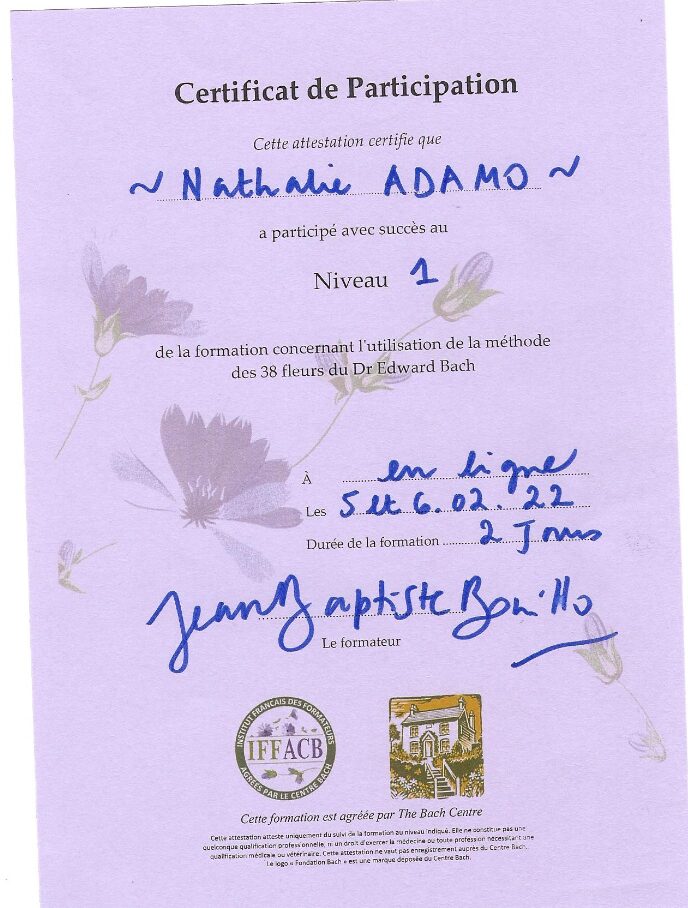 Certificat de Participation
Cette attestation certifie que
~ Nathalie ADAMO ~
a participé avec succès au
Niveau 1
de la formation concernant l'utilisation de la méthode
des 38 fleurs du Dr Edward Bach
À en ligne
Les 5 et 6.02.22
Durée de la formation 2 Jours
Jean Baptiste
Le formateur
INSTITUT FRANÇAIS DES FORMATEURS
IFFACB
AGRÉÉS PAR LE CENTRE BACH
Cette formation est agréée par The Bach Centre
Cette attestation atteste uniquement du suivi de la formation au niveau indiqué. Elle ne constitue pas une
quelconque qualification professionnelle, ni un droit d'exercer la médecine ou toute profession nécessitant une
qualification médicale ou vétérinaire. Cette attestation ne vaut pas enregistrement auprès du Centre Bach.
Le logo « Fondation Bach » est une marque déposée du Centre Bach.